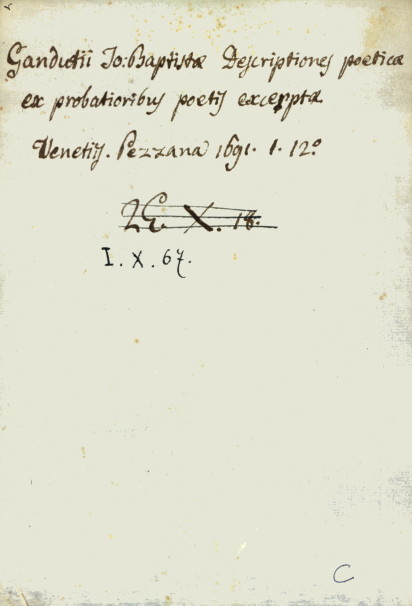 Gandutii Jo: Baptistæ Descriptiones poeticæ
ex probatioribus poetis excerptæ
Venetijs. Pezzana 1691. 1. 12º
I. X. 67.
C